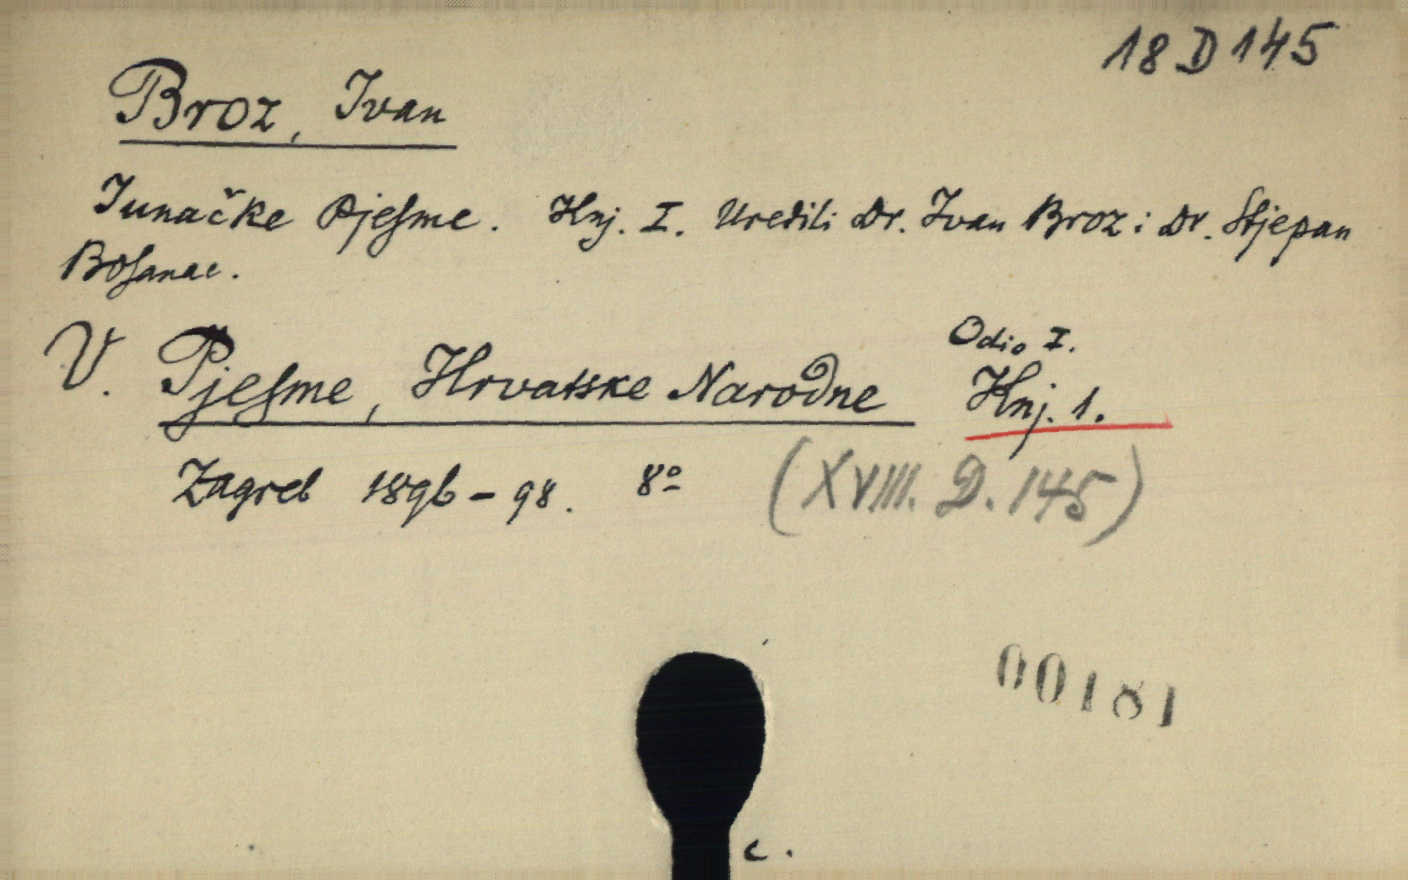 18 D 145
Broz, Ivan
Junačke Pjesme. Knj. I. Uredili Dr. Ivan Broz i Dr. Stjepan
Bosanac.
Odio I.
V. Pjesme, Hrvatske Narodne Knj. 1.
Zagreb 1896-98. 8º (XVIII. D. 145)
00181
c.